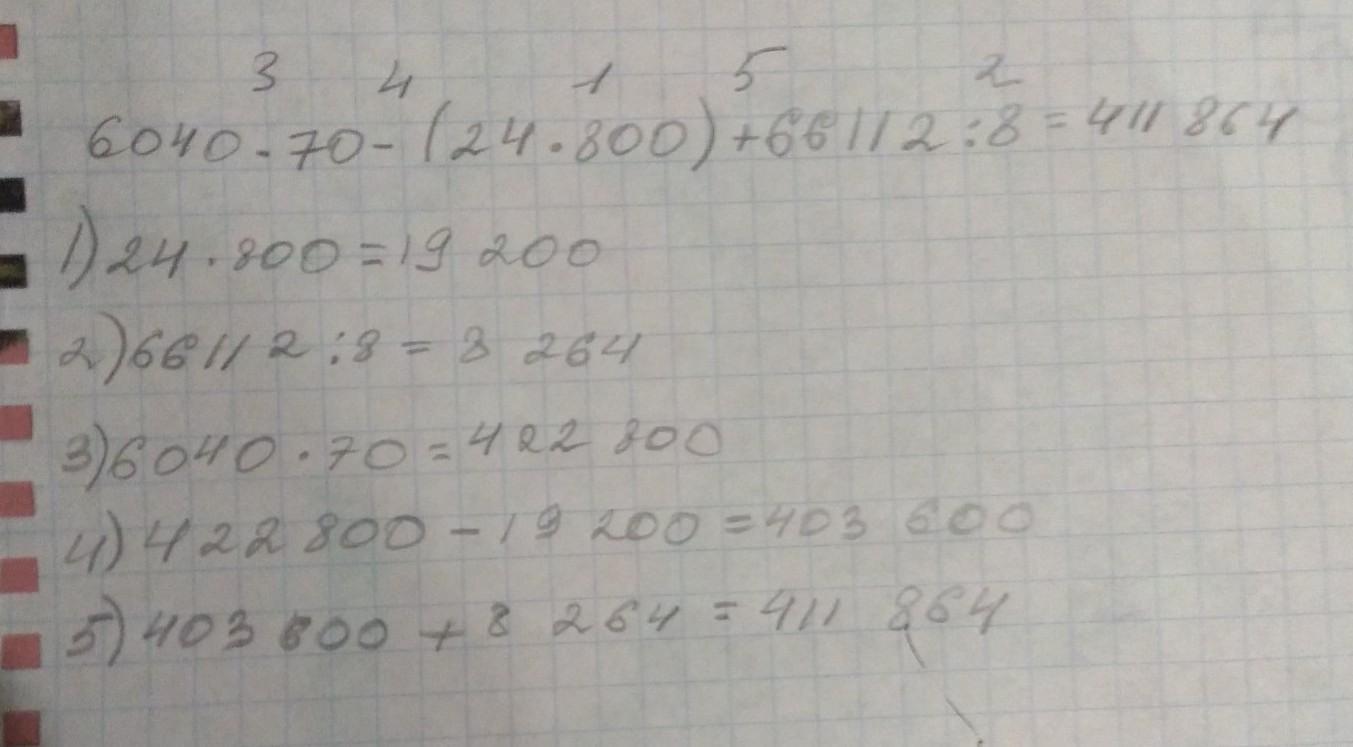 3 4 1 5 2
6040·70-(24·800)+66112:8=411 864
1)24·800=19 200
2)66112:8=8 264
3)6040·70=422 800
4)422 800-19 200=403 600
5)403 600+8 264=411 864